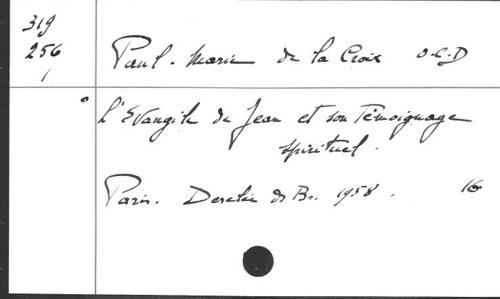 319
256
1
Paul-Marie de la Croix O.C.D
L'Evangile de Jean et son Témoignage
spirituel.
Paris. Desclée de Br. 1958. 16